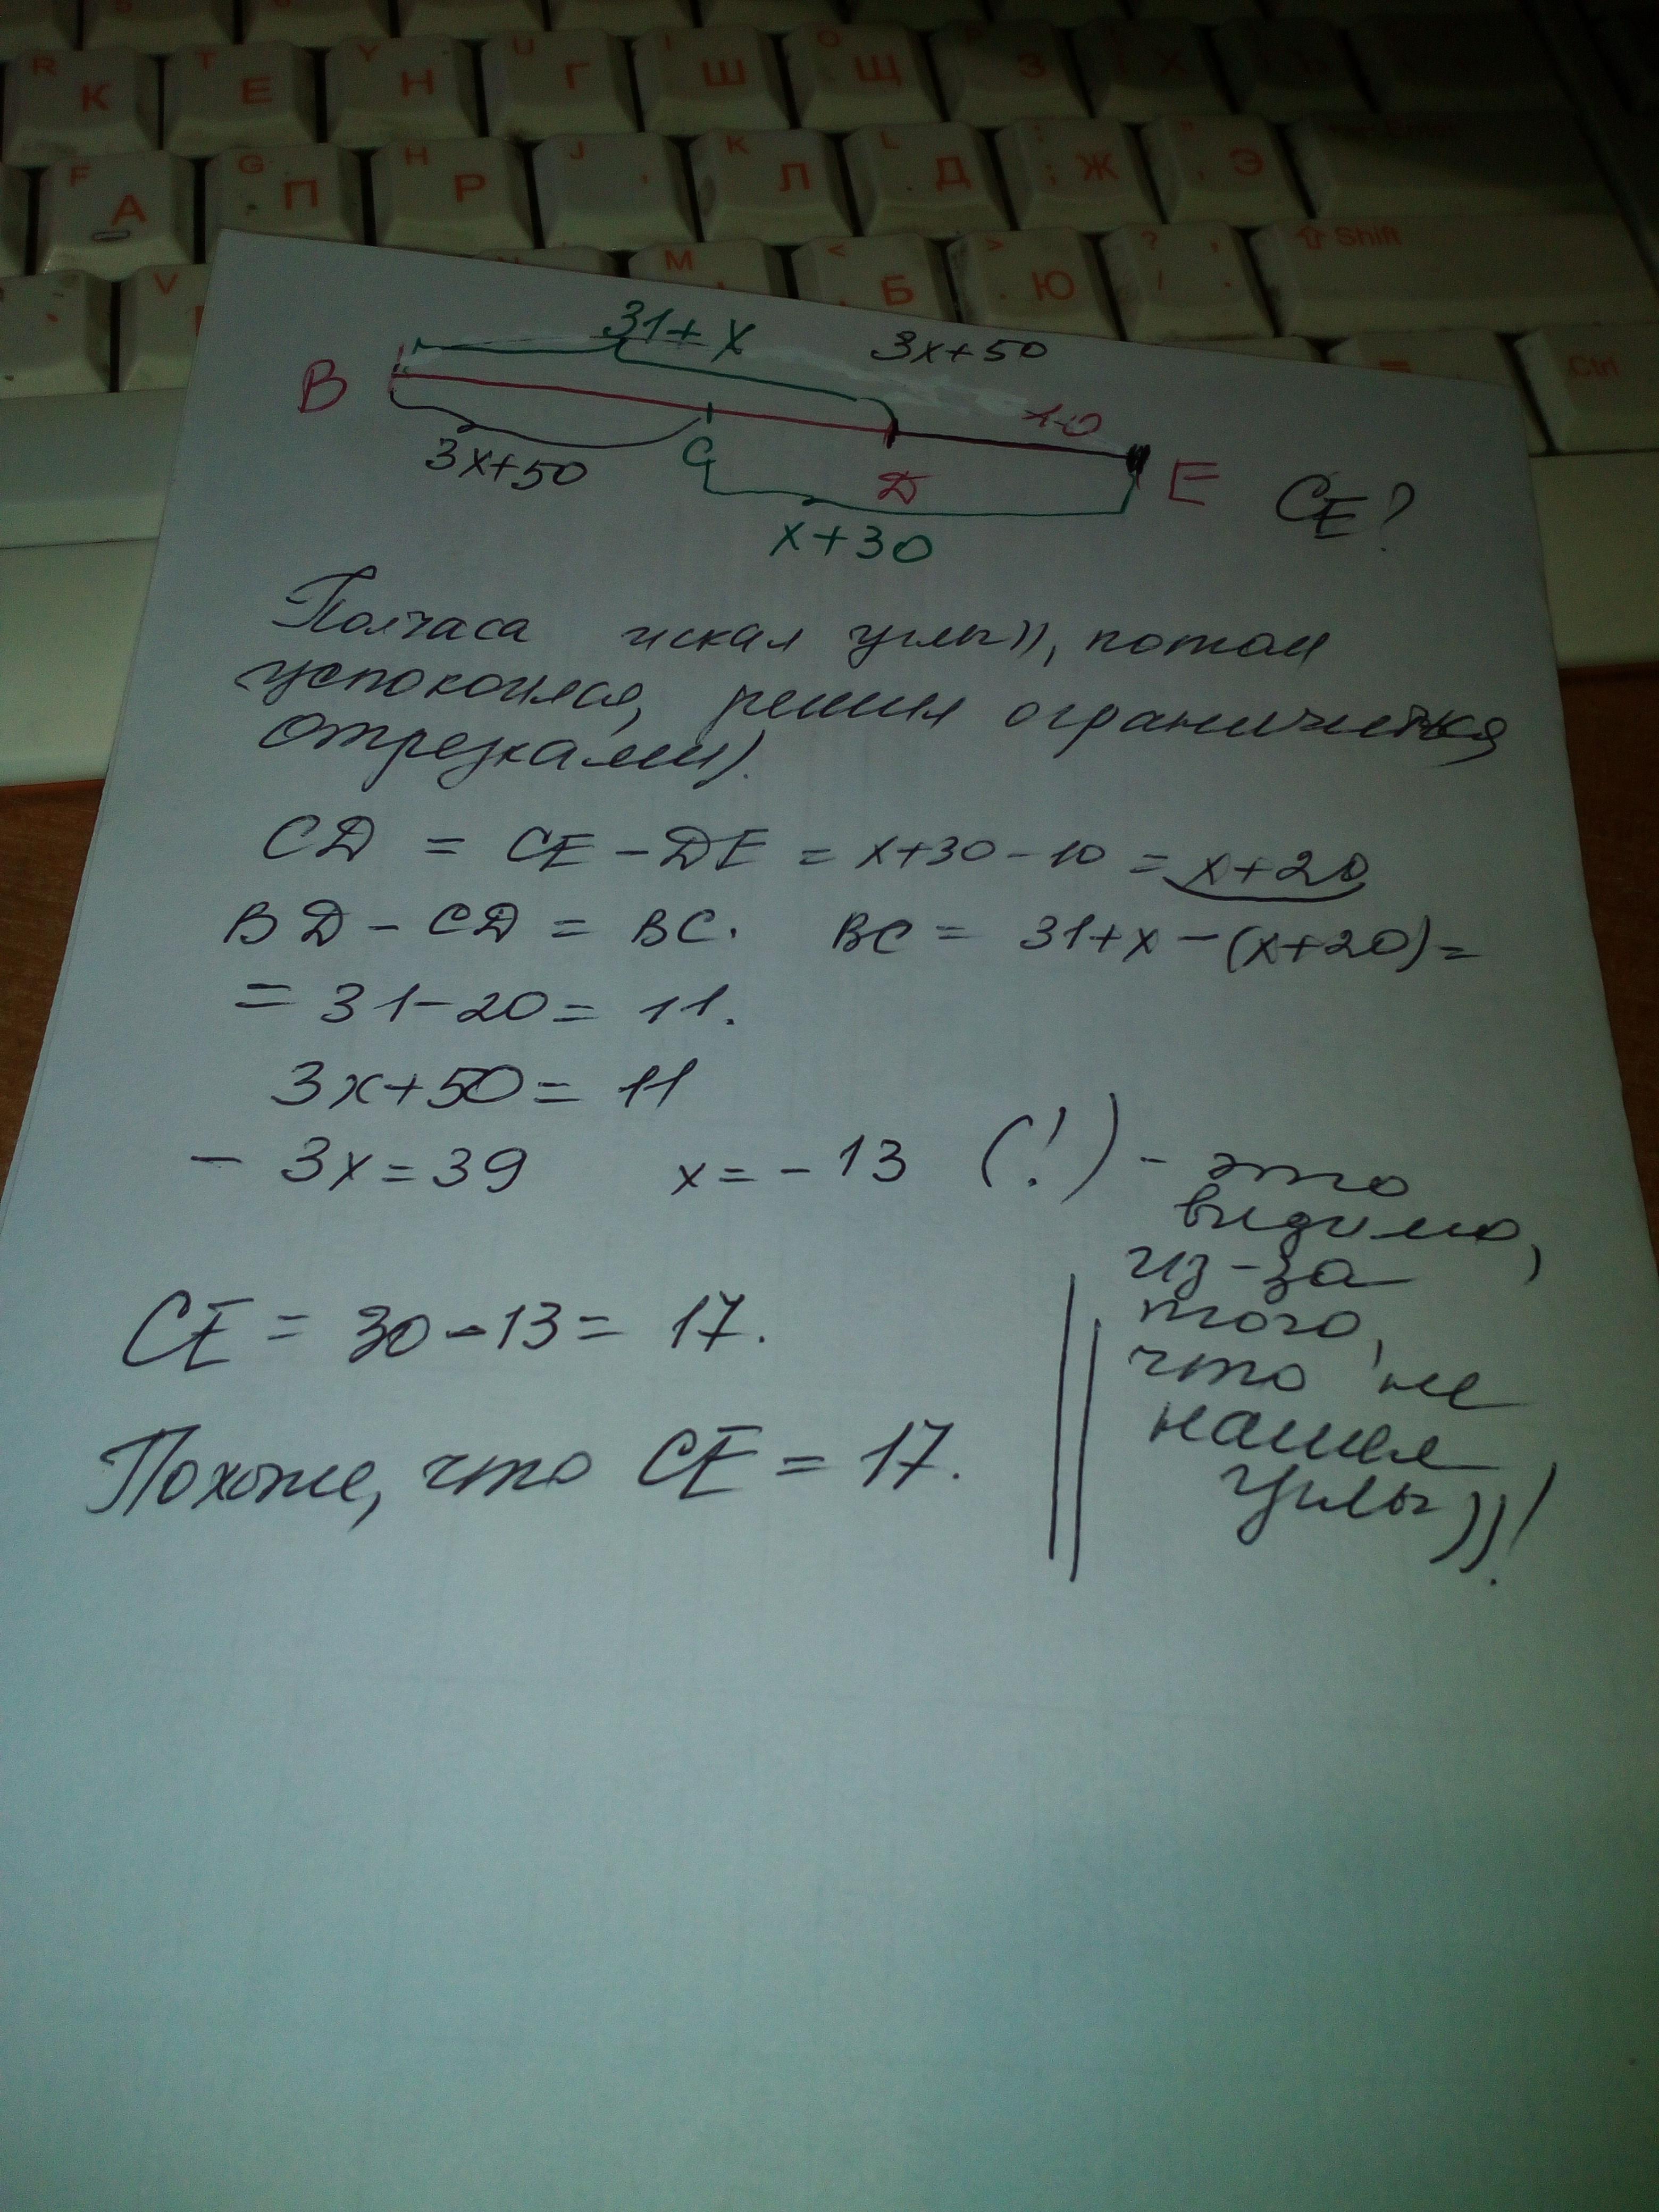 R К T Е Y Н U Г I Ш O Щ З Х
F А G П H Р J K Л L Д ; Ж " Э
V M < Б > Ю ? / ⇧ Shift
= Ctrl
31+x 3x+50
B 10
3x+50 C D E CE?
x+30
Полчаса искал углы)), потом
успокоился, решил ограничиться
отрезками).
CD = CE - DE = x+30-10 = x+20
BD - CD = BC. BC = 31+x-(x+20)=
= 31-20 = 11.
3x+50 = 11
- 3x = 39 x = -13 (!) - это
видимо,
из-за
того,
что не
нашел
углы))!
CE = 30-13 = 17.
Похоже, что CE = 17.